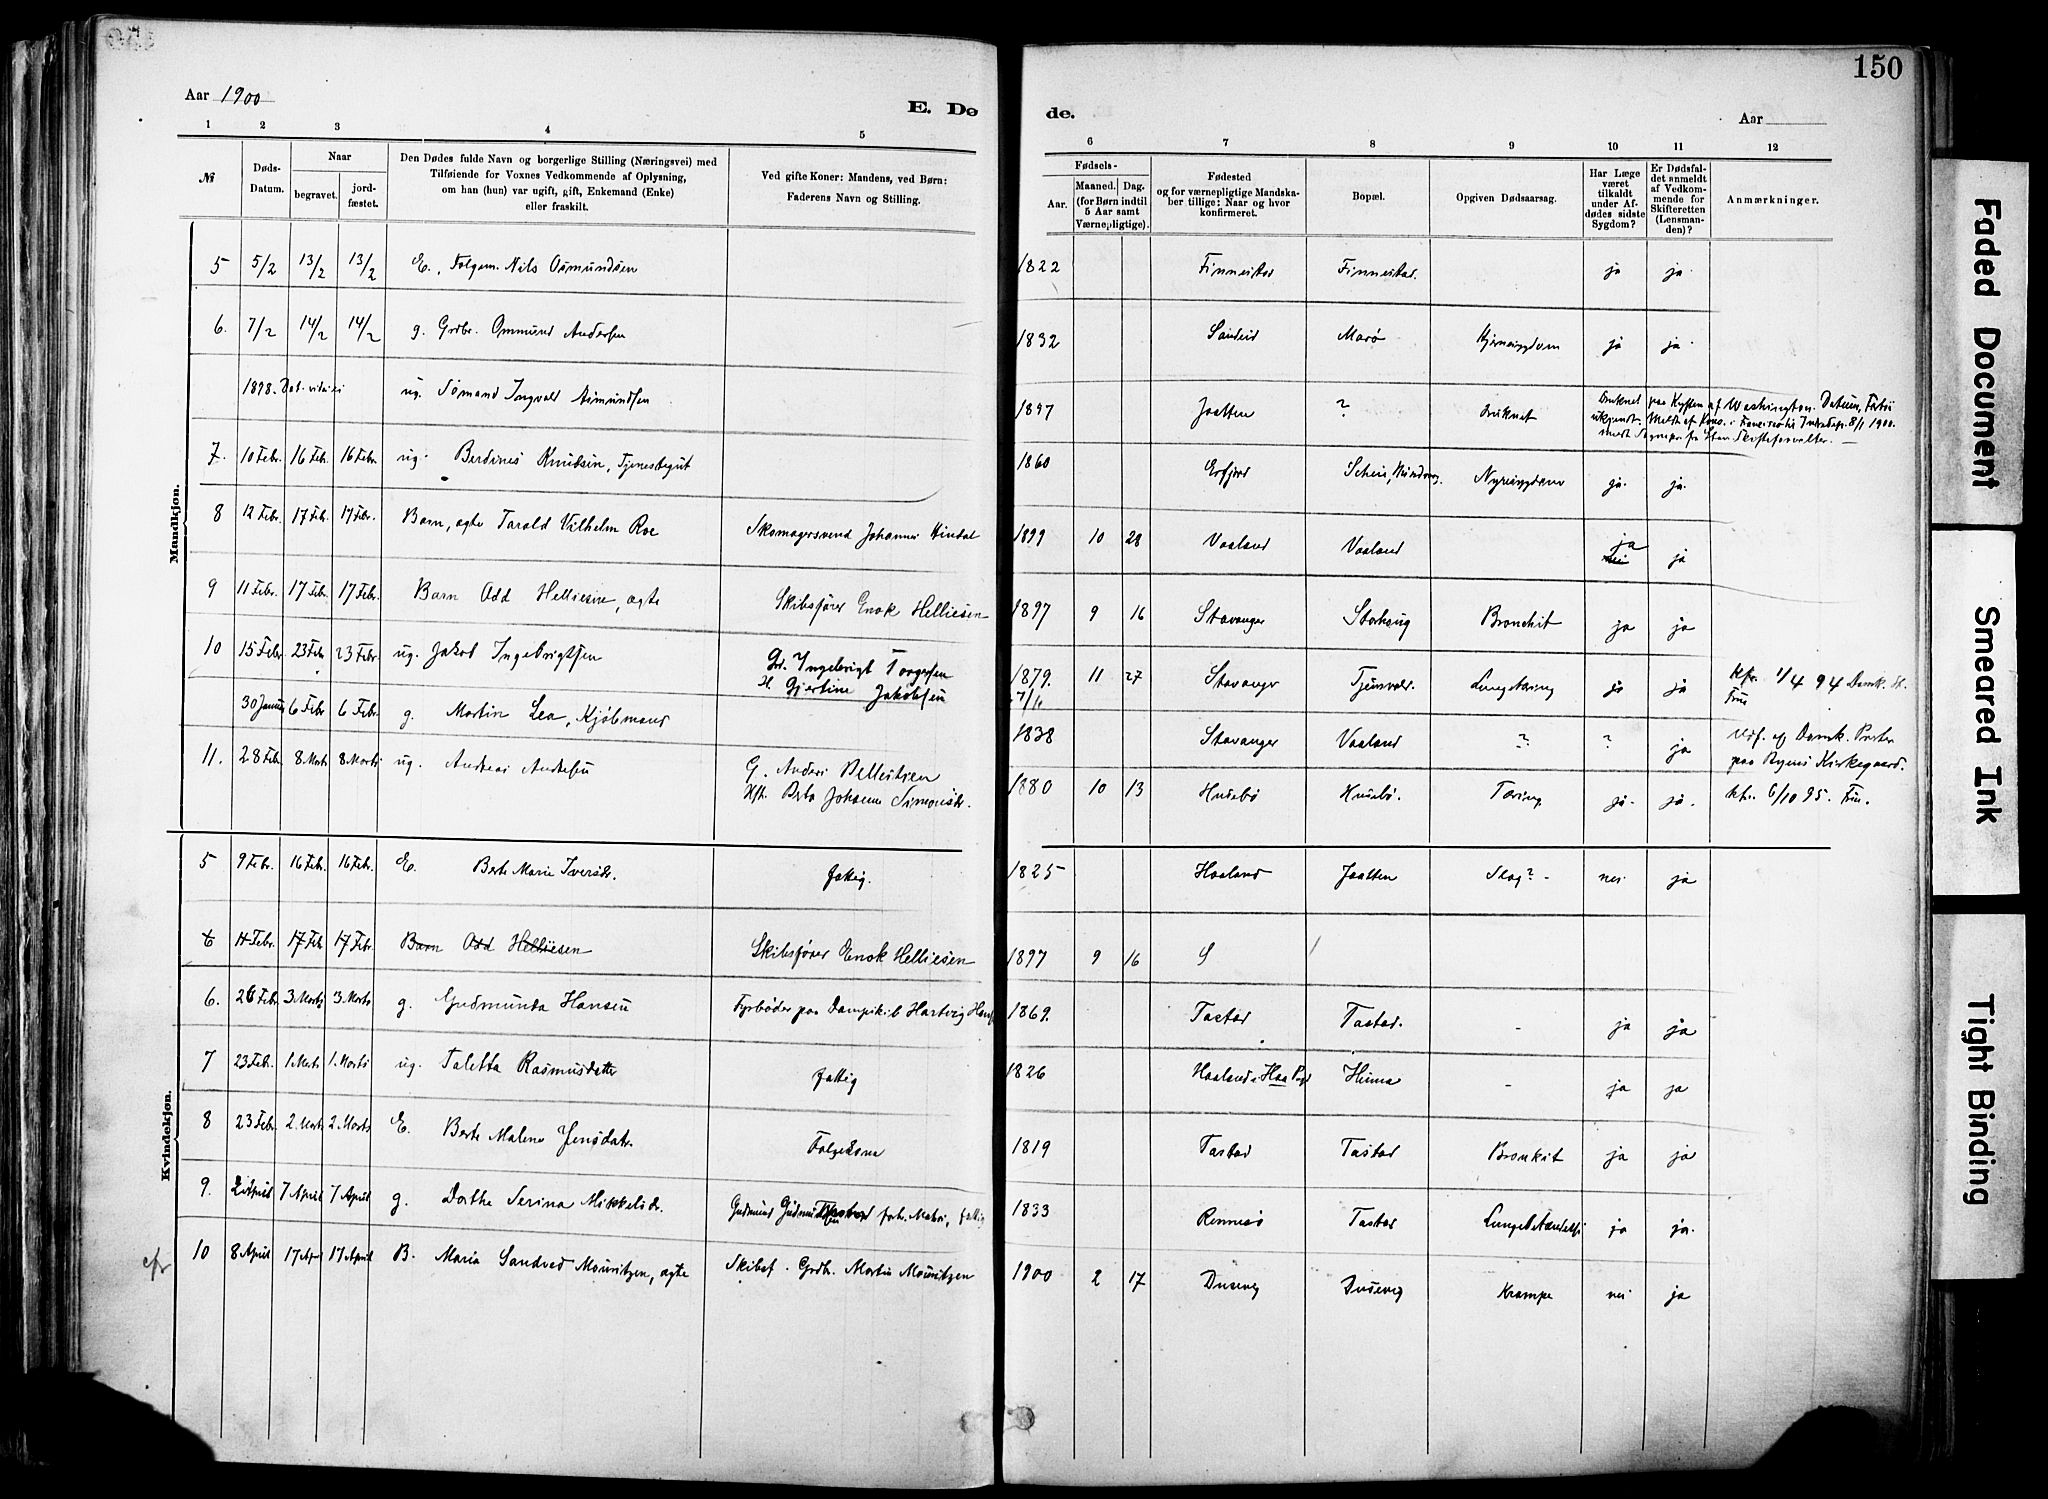 150
Aar 1900
E. Dø
de.
Aar
1 2 3 4 5 6 7 8 9 10 11 12
№
Døds-
Datum.
Naar
begravet.
jord-
fæstet.
Den Dødes fulde Navn og borgerlige Stilling (Næringsvei) med
Tilføiende for Voxnes Vedkommende af Oplysning,
om han (hun) var ugift, gift, Enkemand (Enke)
eller fraskilt.
Ved gifte Koner: Mandens, ved Børn:
Faderens Navn og Stilling.
Fødsels-
Aar.
Maaned. Dag.
(for Børn indtil
5 Aar samt
Værnepligtige).
Fødested
og for værnepligtige Mandska-
ber tillige: Naar og hvor
konfirmeret.
Bopæl.
Opgiven Dødsaarsag.
Har Læge
været
tilkaldt
under Af-
dødes sidste
Sygdom?
Er Dødsfal-
det anmeldt
af Vedkom-
mende for
Skifteretten
(Lensman-
den)?
Anmærkninger.
Mandkjøn.
5 5/2 13/2 13/2 E., Folgem. Nils Osmundsen 1822 Finnestad Finnestad. ja ja
6. 7/2 14/2 14/2 g. Grdbr. Ommund Andersen 1832 Sandeid Marø ja ja
1898. ug. Sømand Ingvald Asmundsen Jaatten ? Druknet
Druknet paa Kysten af Washington. Datum,
ukjendt. 8/1 1900.
7. 10 Febr. 16 Febr. 16 Febr. ug. Berdines Knutsen, Tjenestegut 1860 Erfjord ja. ja.
8 12 Febr. 17 Febr. 17 Febr. Barn, ægte Tarald Vilhelm Roe Skomagersvend Johannes Hindal 1899 10 28 Vaaland Vaaland ja nei ja
9 11 Febr. 17 Febr. 17 Febr. Barn Odd Helliesen, ægte Skibsfører Enok Helliesen 1897 9 16 Stavanger Storhaug Bronchit ja ja
10 15 Febr. 23 Febr. 23 Febr. ug. Jakob Ingebrigtsen Gr. Ingebrigt Torgersen
H. Gjertine Jakobsen 1879. 11 27 Stavanger Tjensvold. Lungetæring ja ja 1/4 94 Domk. St.
30 Januar 6 Febr 6 Febr. g. Martin Lea, Kjøbmand 1838 Stavanger Vaaland ? ? ja Udf. af Domk. Prester
paa Byens Kirkegaard.
11. 28 Febr. 8 Marts 8 Marts ug. Andreas Andersen G. Anders Pellestsen
Hst. Berta Johanne Simonsdr. 1880 10 13 Husebø Husebø. Tæring ja. ja. kfr. 6/10 95. Frue.
Kvindekjøn.
5 9 Febr. 16 Febr. 16 Febr. E. Berte Marie Iversdr. fattig. 1825 Haaland Jaatten Slag? - nei ja
6 11 Febr. 17 Febr 17 Febr. Barn Odd Helliesen Skibsfører Enok Helliesen 1897 9 16 S
6. 26 Febr 3 Marts 3 Marts g. Gudmunda Hansen Fyrbøder paa Dampskib Hartvig Hans 1869. Tastad Tastad. - ja ja
7 23 Febr. 1. Marts 1. Marts ug. Taletta Rasmusdatter fattig 1826 Haaland i Haa Pgd Hinna - ja ja
8 23 Febr. 2. Marts 2. Marts E. Berte Malene Jensdatr. Folgekona 1819 Tastad Tastad Bronkit ja ja
9. 2 April 7 April 7 April g. Dorthe Serina Mikkelsdr. Gudmund Gudmundsen fattig 1833 Rennesø Tastad Lungebetændelse ja ja.
cfr 10 8 April 17 Apr 17 April B. Maria Sandved Mouritzen, ægte Skibsf. Grdbr. Martin Mouritzen 1900 2 17 Dusevig Dusevig Krampe nei ja
Faded Document
Smeared Ink
Tight Binding